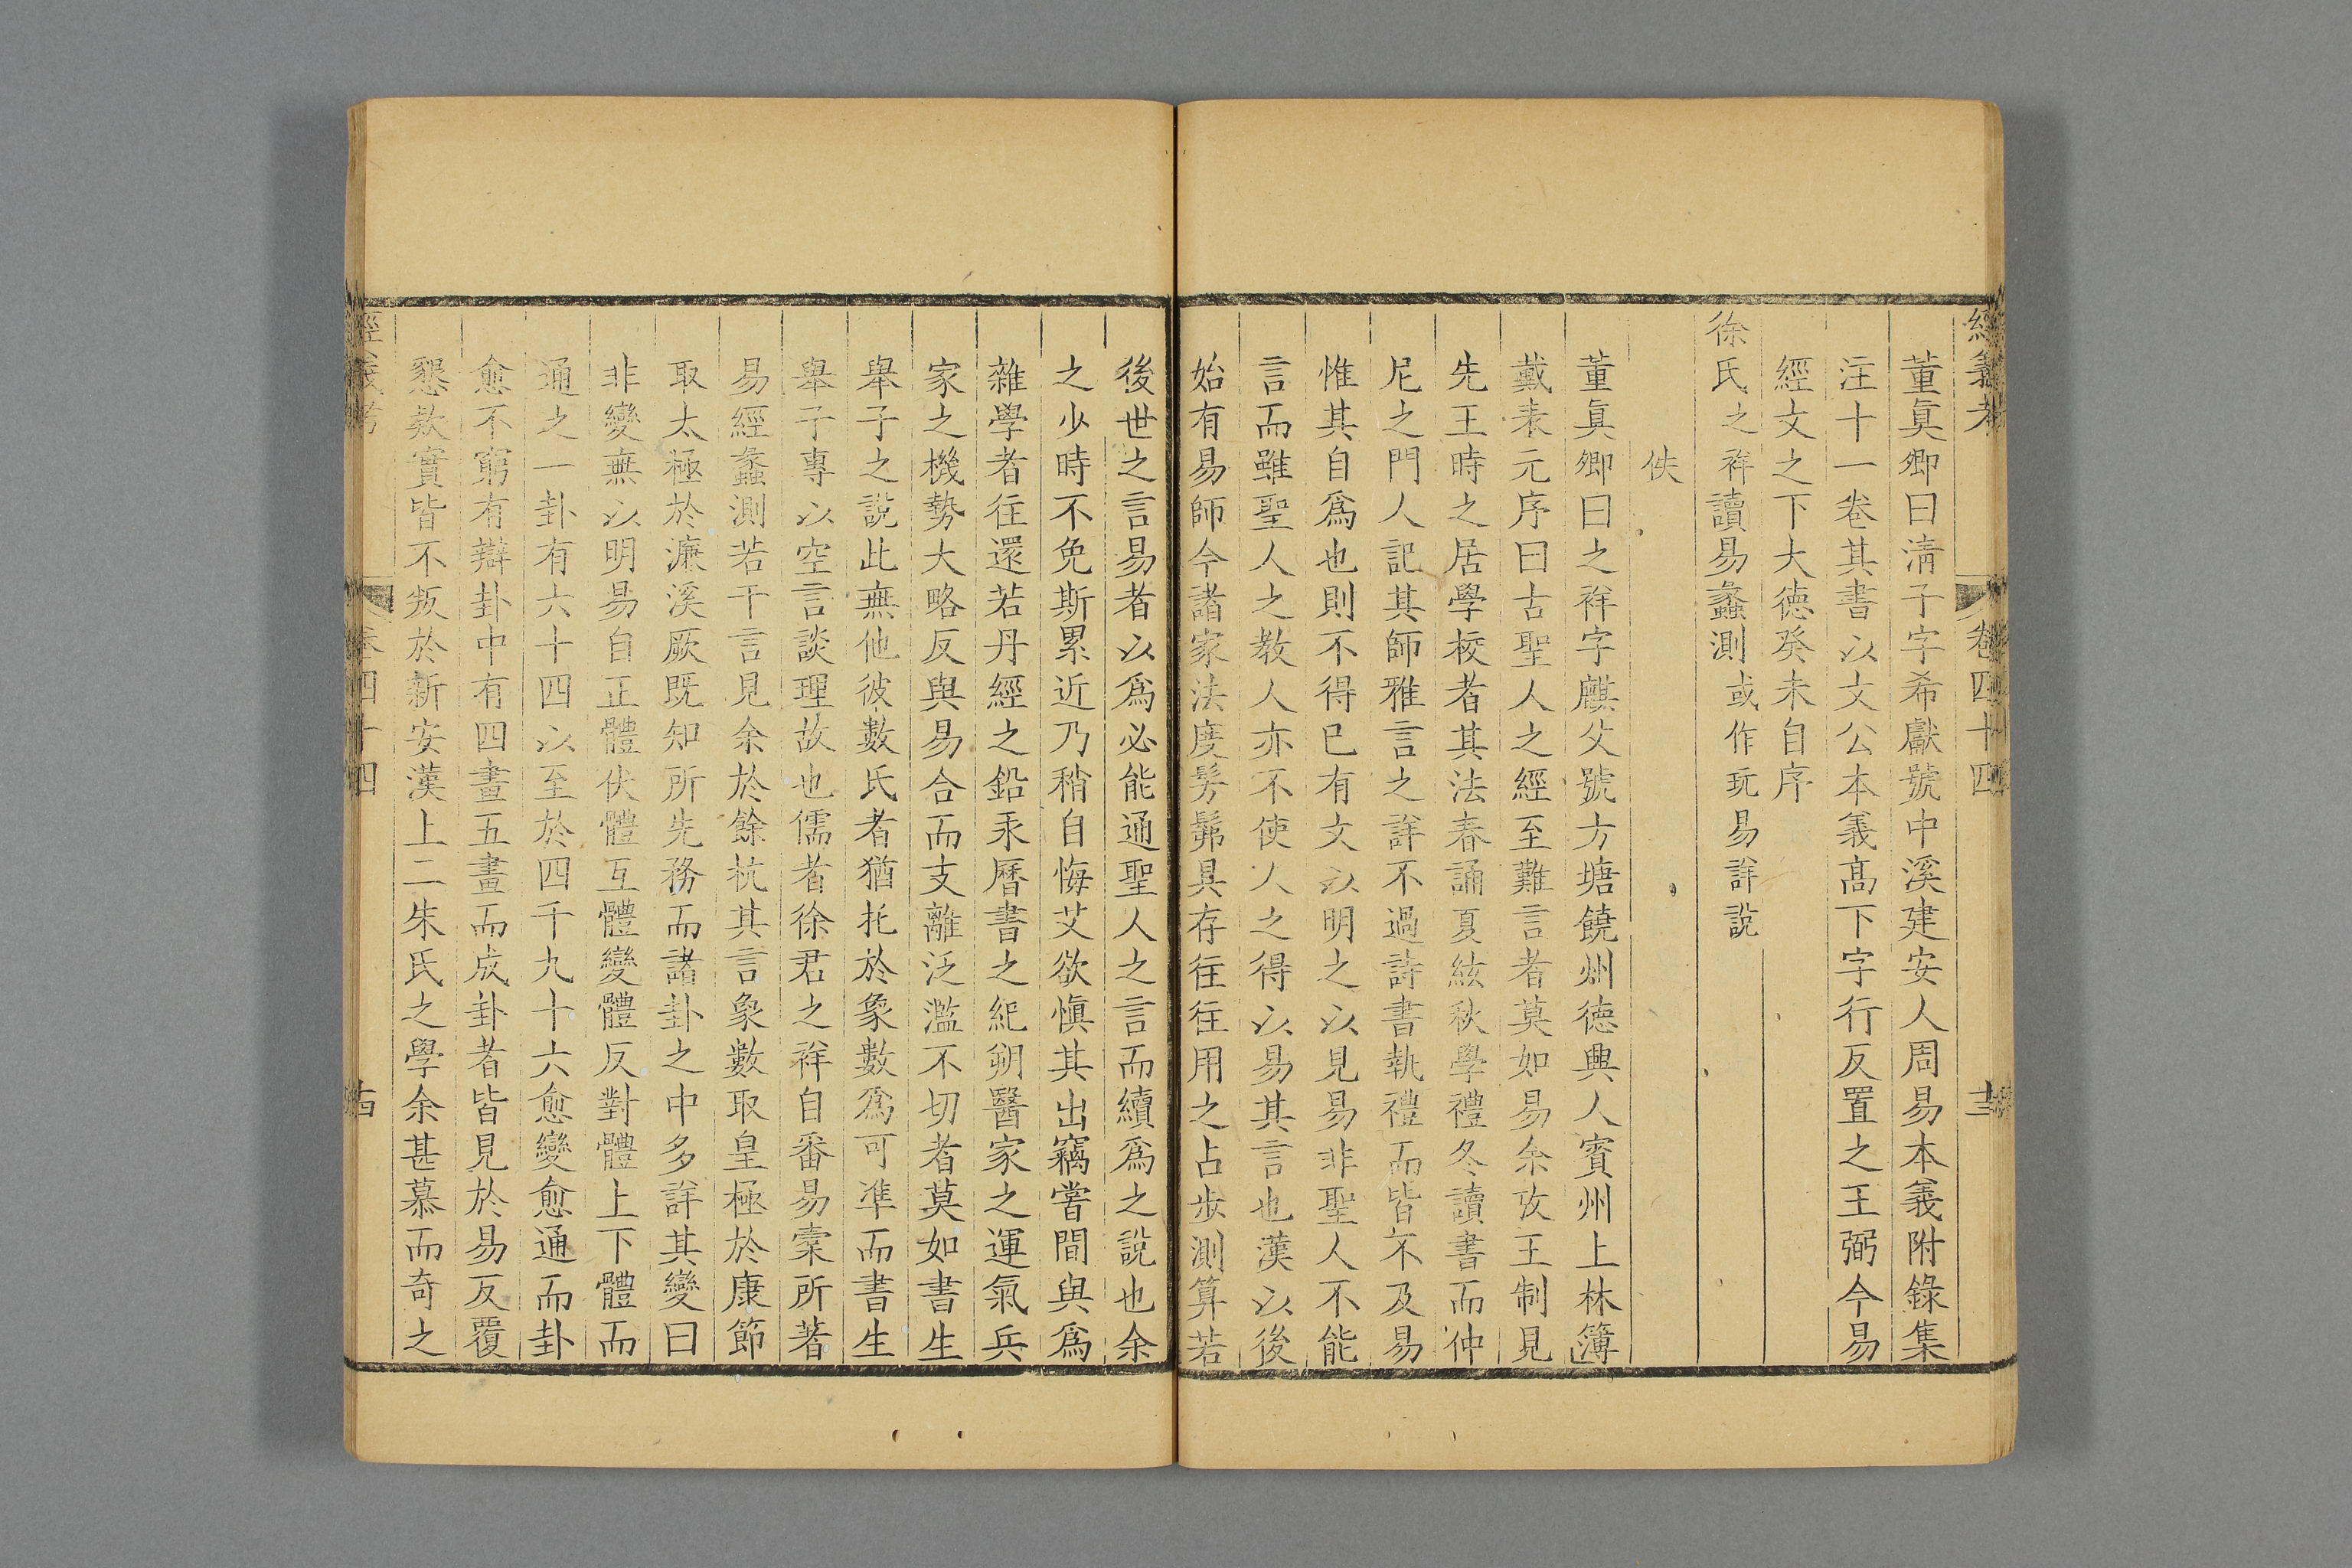 經義考 卷四十四 十三
董眞卿曰淸子字希獻號中溪建安人周易本義附錄集
注十一卷其書以文公本義高下字行反置之王弼今易
經文之下大德癸未自序
徐氏之祥讀易蠡測或作玩易詳說
佚
董眞卿曰之祥字麒父號方塘饒州德興人賓州上林簿
戴表元序曰古聖人之經至難言者莫如易余攷王制見
先王時之居學校者其法春誦夏絃秋學禮冬讀書而仲
尼之門人記其師雅言之詳不過詩書執禮而皆不及易
惟其自爲也則不得已有文以明之以見易非聖人不能
言而雖聖人之教人亦不使人之得以易其言也漢以後
始有易師今諸家法度髣髴具存往往用之占步測算若
後世之言易者以爲必能通聖人之言而續爲之說也余
之少時不免斯累近乃稍自悔艾欲愼其出竊嘗間與爲
雜學者往還若丹經之鉛汞曆書之紀朔醫家之運氣兵
家之機勢大略反與易合而支離泛濫不切者莫如書生
舉子之說此無他彼數氏者猶托於象數爲可準而書生
舉子專以空言談理故也儒者徐君之祥自番易橐所著
易經蠡測若干言見余於餘杭其言象數取皇極於康節
取太極於濂溪厥既知所先務而諸卦之中多詳其變曰
非變無以明易自正體伏體互體變體反對體上下體而
通之一卦有六十四以至於四千九十六愈變愈通而卦
愈不窮有辯卦中有四畫五畫而成卦者皆見於易反覆
懇欵實皆不叛於新安漢上二朱氏之學余甚慕而奇之
經義考 卷四十四 十四